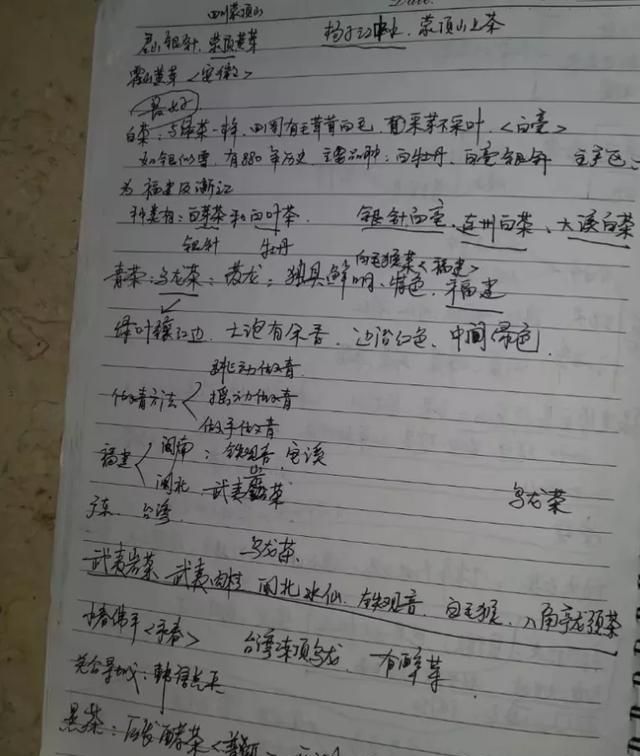 四川蒙顶山
君山银针、蒙顶黄芽 扬子江中水、蒙顶山上茶
霍山黄芽<安徽>
白茶:与绿茶一样, 四周有毛茸茸白毛, 采芽不采叶.<白毫>
如银似雪, 有880年历史, 主要品种:白牡丹、白毫银针 主产区:
为福建及浙江
种类有:白芽茶和白叶茶. 银针白毫、 白茶、大溪白茶
银针 牡丹
白毛猴茶<福建>
青茶:乌龙茶: 龙;独具鲜明、特色.
绿叶镶红边. 七泡有余香. 边沿红色、中间绿色.
跳动做青
做青方法 摇动做青
做手做青
福建 闽南:铁观音、
闽北、武夷岩茶 乌龙茶
广东、台湾
乌龙茶、
武夷岩茶 武夷肉桂 闽北水仙. 铁观音. 白毛猴、八角亭龙须茶
永春佛手<永春> 台湾冻顶乌龙、
黑茶:后发酵茶